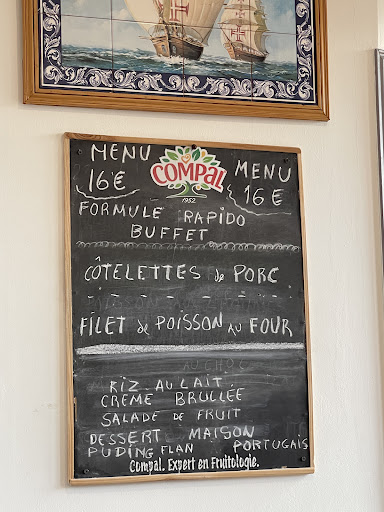 MENU
16€
COMPAL
1952
MENU
16€
FORMULE RAPIDO
BUFFET
CÔTELETTES de PORC
FILET de POISSON AU FOUR
AU CHOC
RIZ AU LAIT.
CREME BRULLÉE
SALADE DE FRUIT
DESSERT MAISON
PUDING FLAN PORTUGAIS
Compal. Expert en Fruitologie.